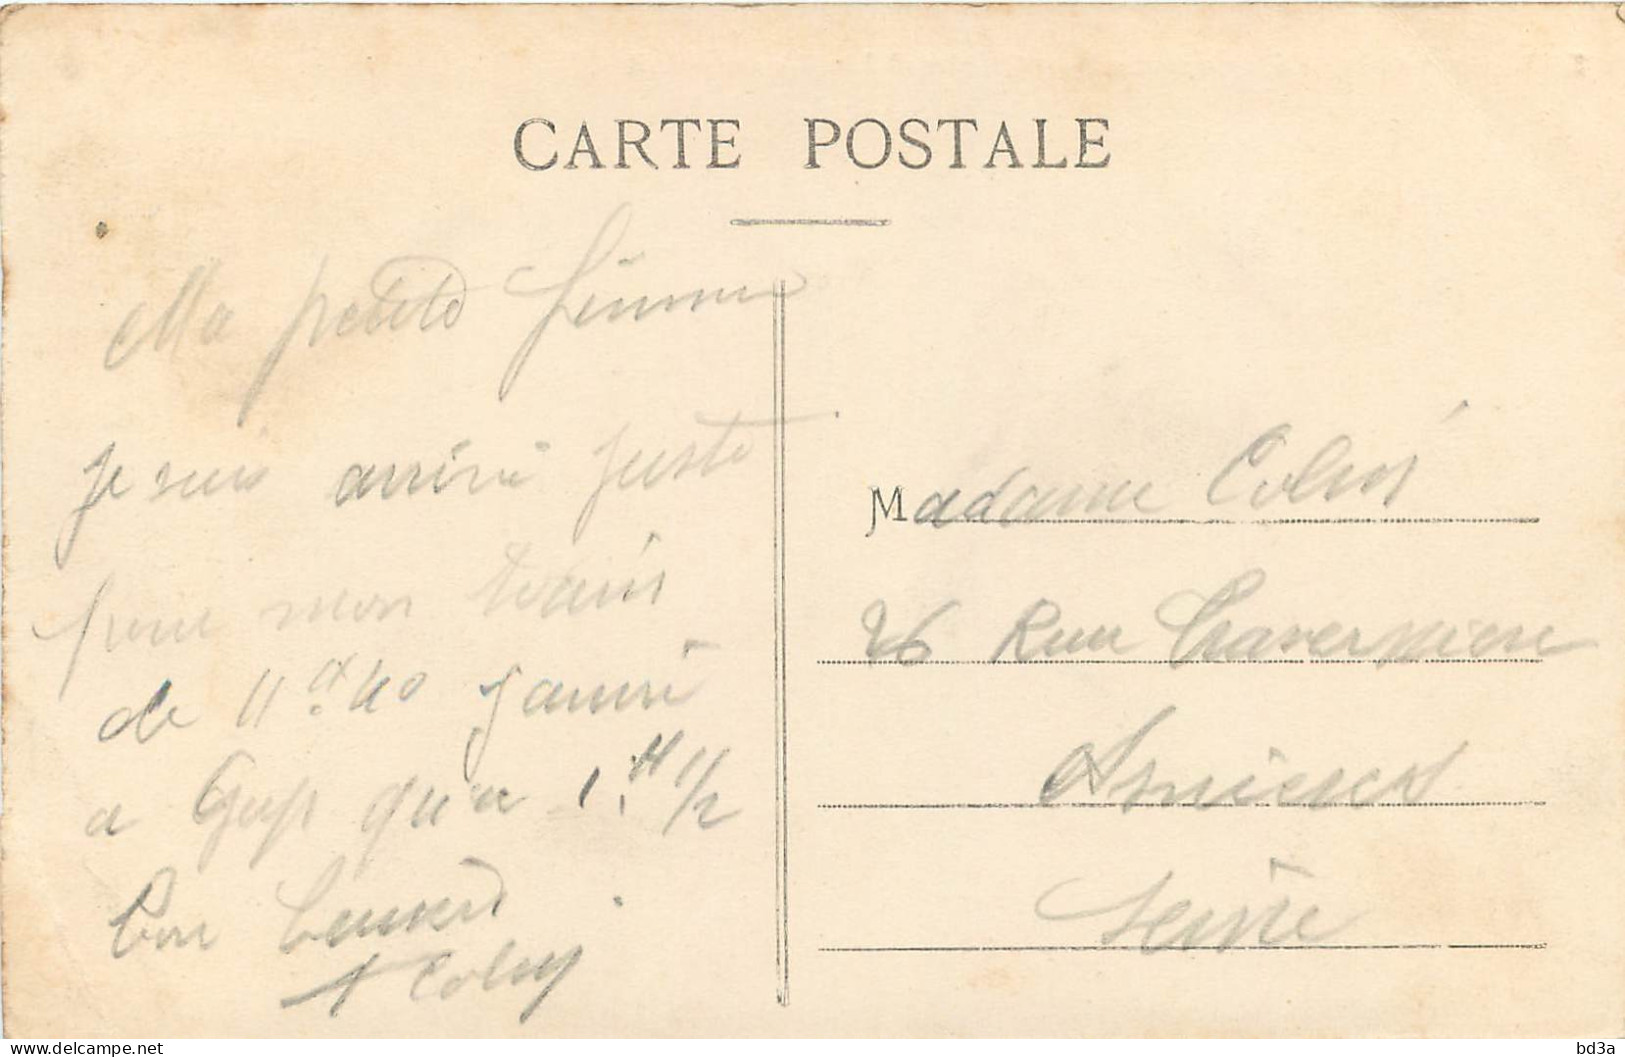 CARTE POSTALE
Ma petite femme
je suis arrivé juste
pour mon train
de 11 H 40 J'arrive
a Gap qu'a 1 H 1/2
Bon baiser
A Coly
Madame
26 Rue Traversière
Asnieres
Seine
bd3a